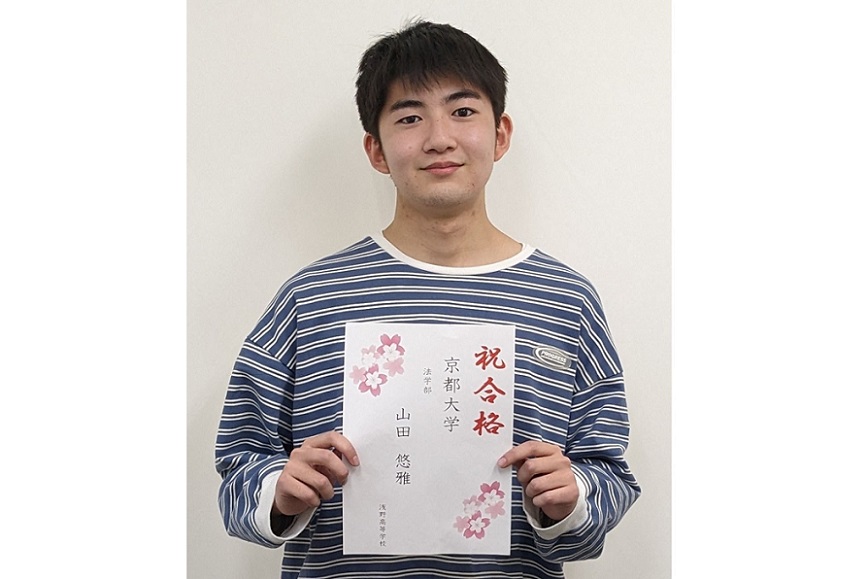 祝合格
京都大学
法学部
山田 悠雅
浅野高等学校
PROGRESS